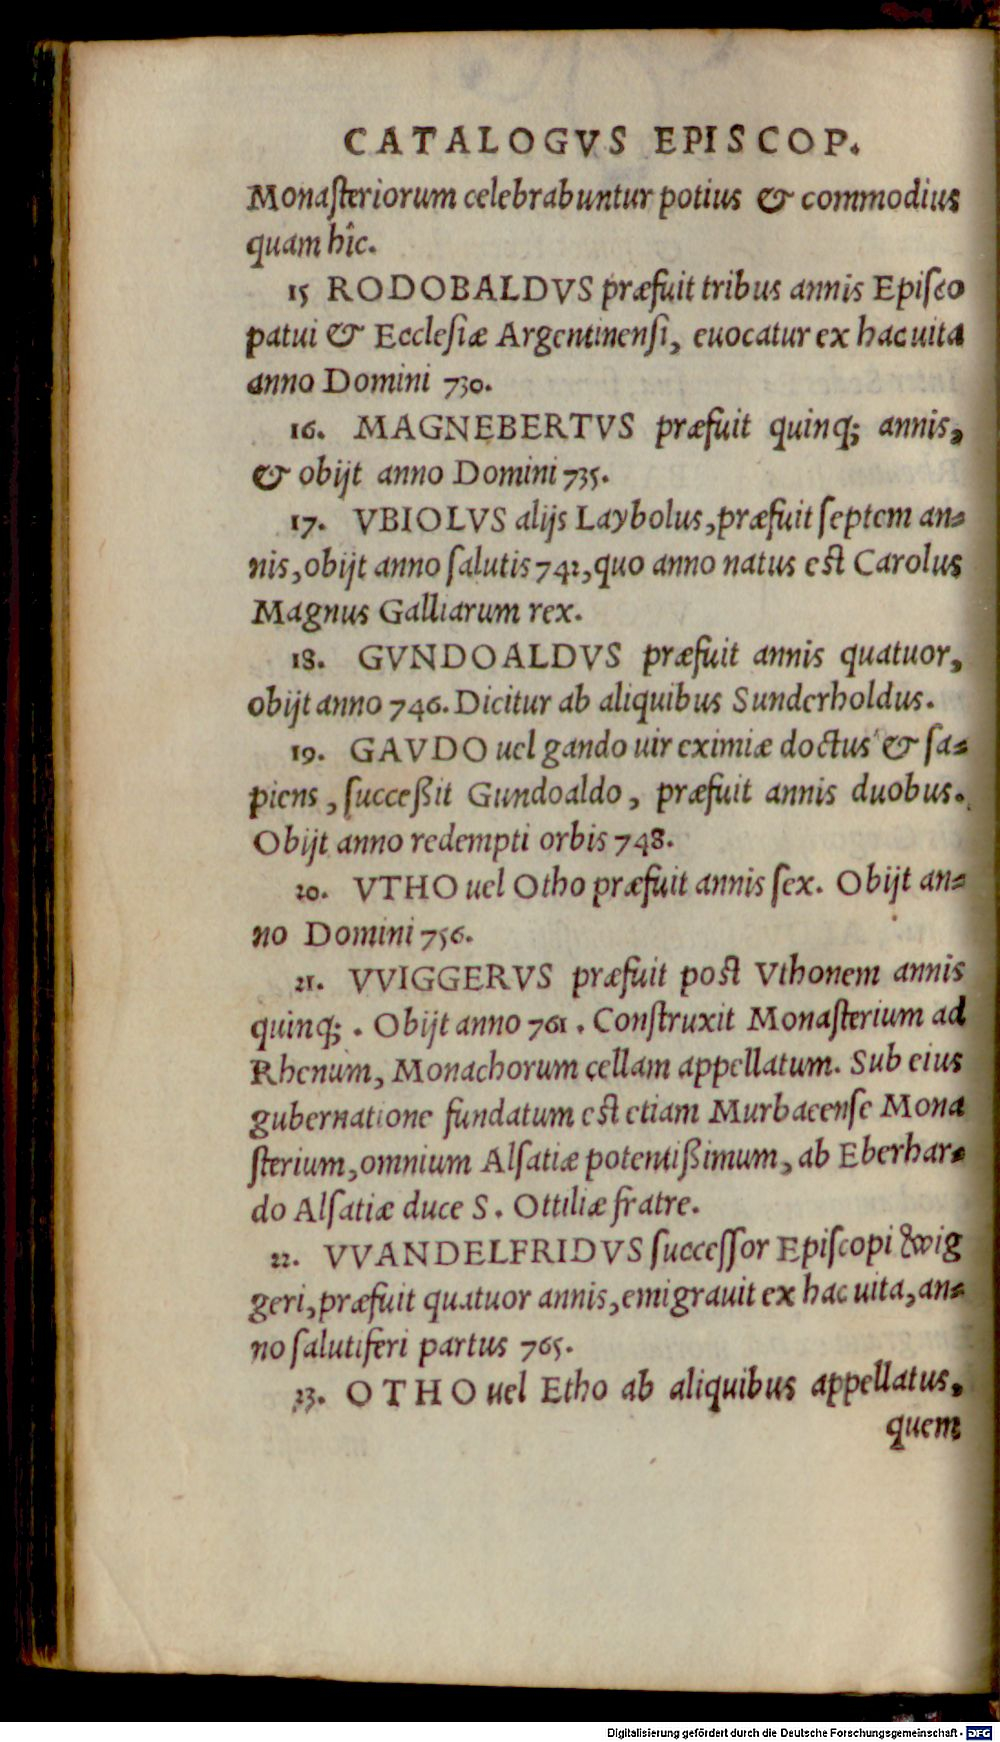 CATALOGVS EPISCOP.
Monaſteriorum celebrabuntur potius & commodius
quam hîc.
15 RODOBALDVS præfuit tribus annis Epiſco
patui & Eccleſiæ Argentinenſi, euocatur ex hac uita
anno Domini 730.
16. MAGNEBERTVS præfuit quinq; annis,
& obijt anno Domini 735.
17. VBIOLVS alijs Laybolus, præfuit ſeptem an-
nis, obijt anno ſalutis 742, quo anno natus est Carolus
Magnus Galliarum rex.
18. GVNDOALDVS præfuit annis quatuor,
obijt anno 746. Dicitur ab aliquibus Sunderholdus.
19. GAVDO uel gando uir eximiæ doctus & ſa-
piens, ſucceßit Gundoaldo, præfuit annis duobus.
Obijt anno redempti orbis 748.
20. VTHO uel Otho præfuit annis ſex. Obijt an-
no Domini 756.
21. VVIGGERVS præfuit post Vthonem annis
quinq;. Obijt anno 761. Conſtruxit Monaſterium ad
Rhenum, Monachorum cellam appellatum. Sub eius
gubernatione fundatum est etiam Murbacenſe Mona
ſterium, omnium Alſatiæ potentißimum, ab Eberhar-
do Alſatiæ duce S. Ottiliæ fratre.
22. VVANDELFRIDVS ſucceſſor Epiſcopi Wig
geri, præfuit quatuor annis, emigrauit ex hac uita, an-
no ſalutiferi partus 765.
23. OTHO uel Etho ab aliquibus appellatus,
quem
Digitalisierung gefördert durch die Deutsche Forschungsgemeinschaft - DFG